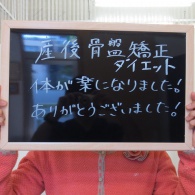 産後骨盤矯正
ダイエット
体が楽になりました!
ありがとうございました!